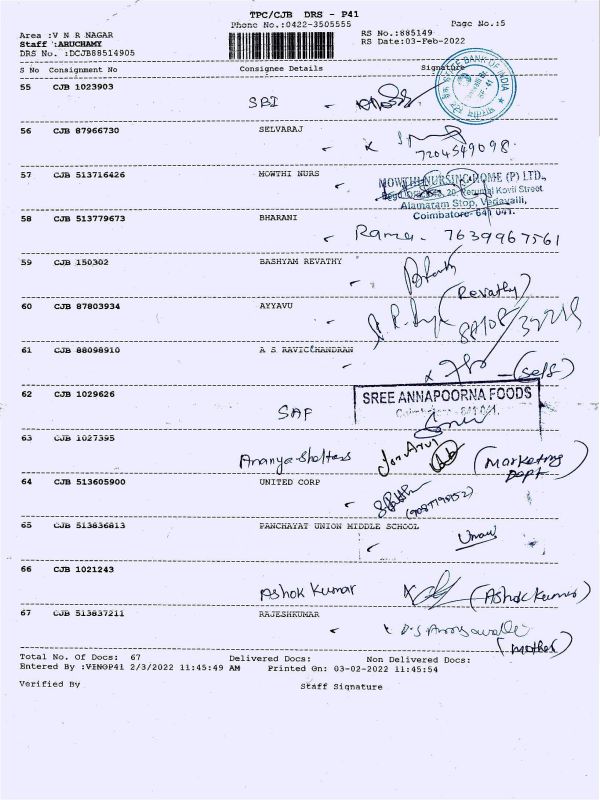 TPC/CJB DRS - P41
Phone No.:0422-3505555 Page No.:5
Area :V N R NAGAR RS No.:885149
Staff :ARUCHAMY RS Date:03-Feb-2022
DRS No. :DCJB88514905
S No Consignment No Consignee Details Signature
STATE BANK OF INDIA
55 CJB 1023903
SBI
56 CJB 87966730 SELVARAJ
7204549098
57 CJB 513716426 MOWTHI NURS
MOWTHI NURSING HOME (P) LTD.,
Kovil Street
Alamaram Stop, Vedavalli,
Coimbatore- 641 041.
58 CJB 513779673 BHARANI
Rama. 7639967561
59 CJB 150302 BASHYAM REVATHY
(Revathy)
60 CJB 87803934 AYYAVU
61 CJB 88098910 A S RAVICCHANDRAN
(self)
62 CJB 1029626
SAF
SREE ANNAPOORNA FOODS
Coimbatore - 641 041.
63 CJB 1027395
Ananya Shelters (Marketing
Dept
64 CJB 513605900 UNITED CORP
65 CJB 513836813 PANCHAYAT UNION MIDDLE SCHOOL
66 CJB 1021243
Ashok Kumar (Ashok Kumar)
67 CJB 513837211 RAJESHKUMAR
(mother)
Total No. Of Docs: 67 Delivered Docs: Non Delivered Docs:
Entered By :VINOP41 2/3/2022 11:45:49 AM Printed On: 03-02-2022 11:45:54
Verified By Staff Signature